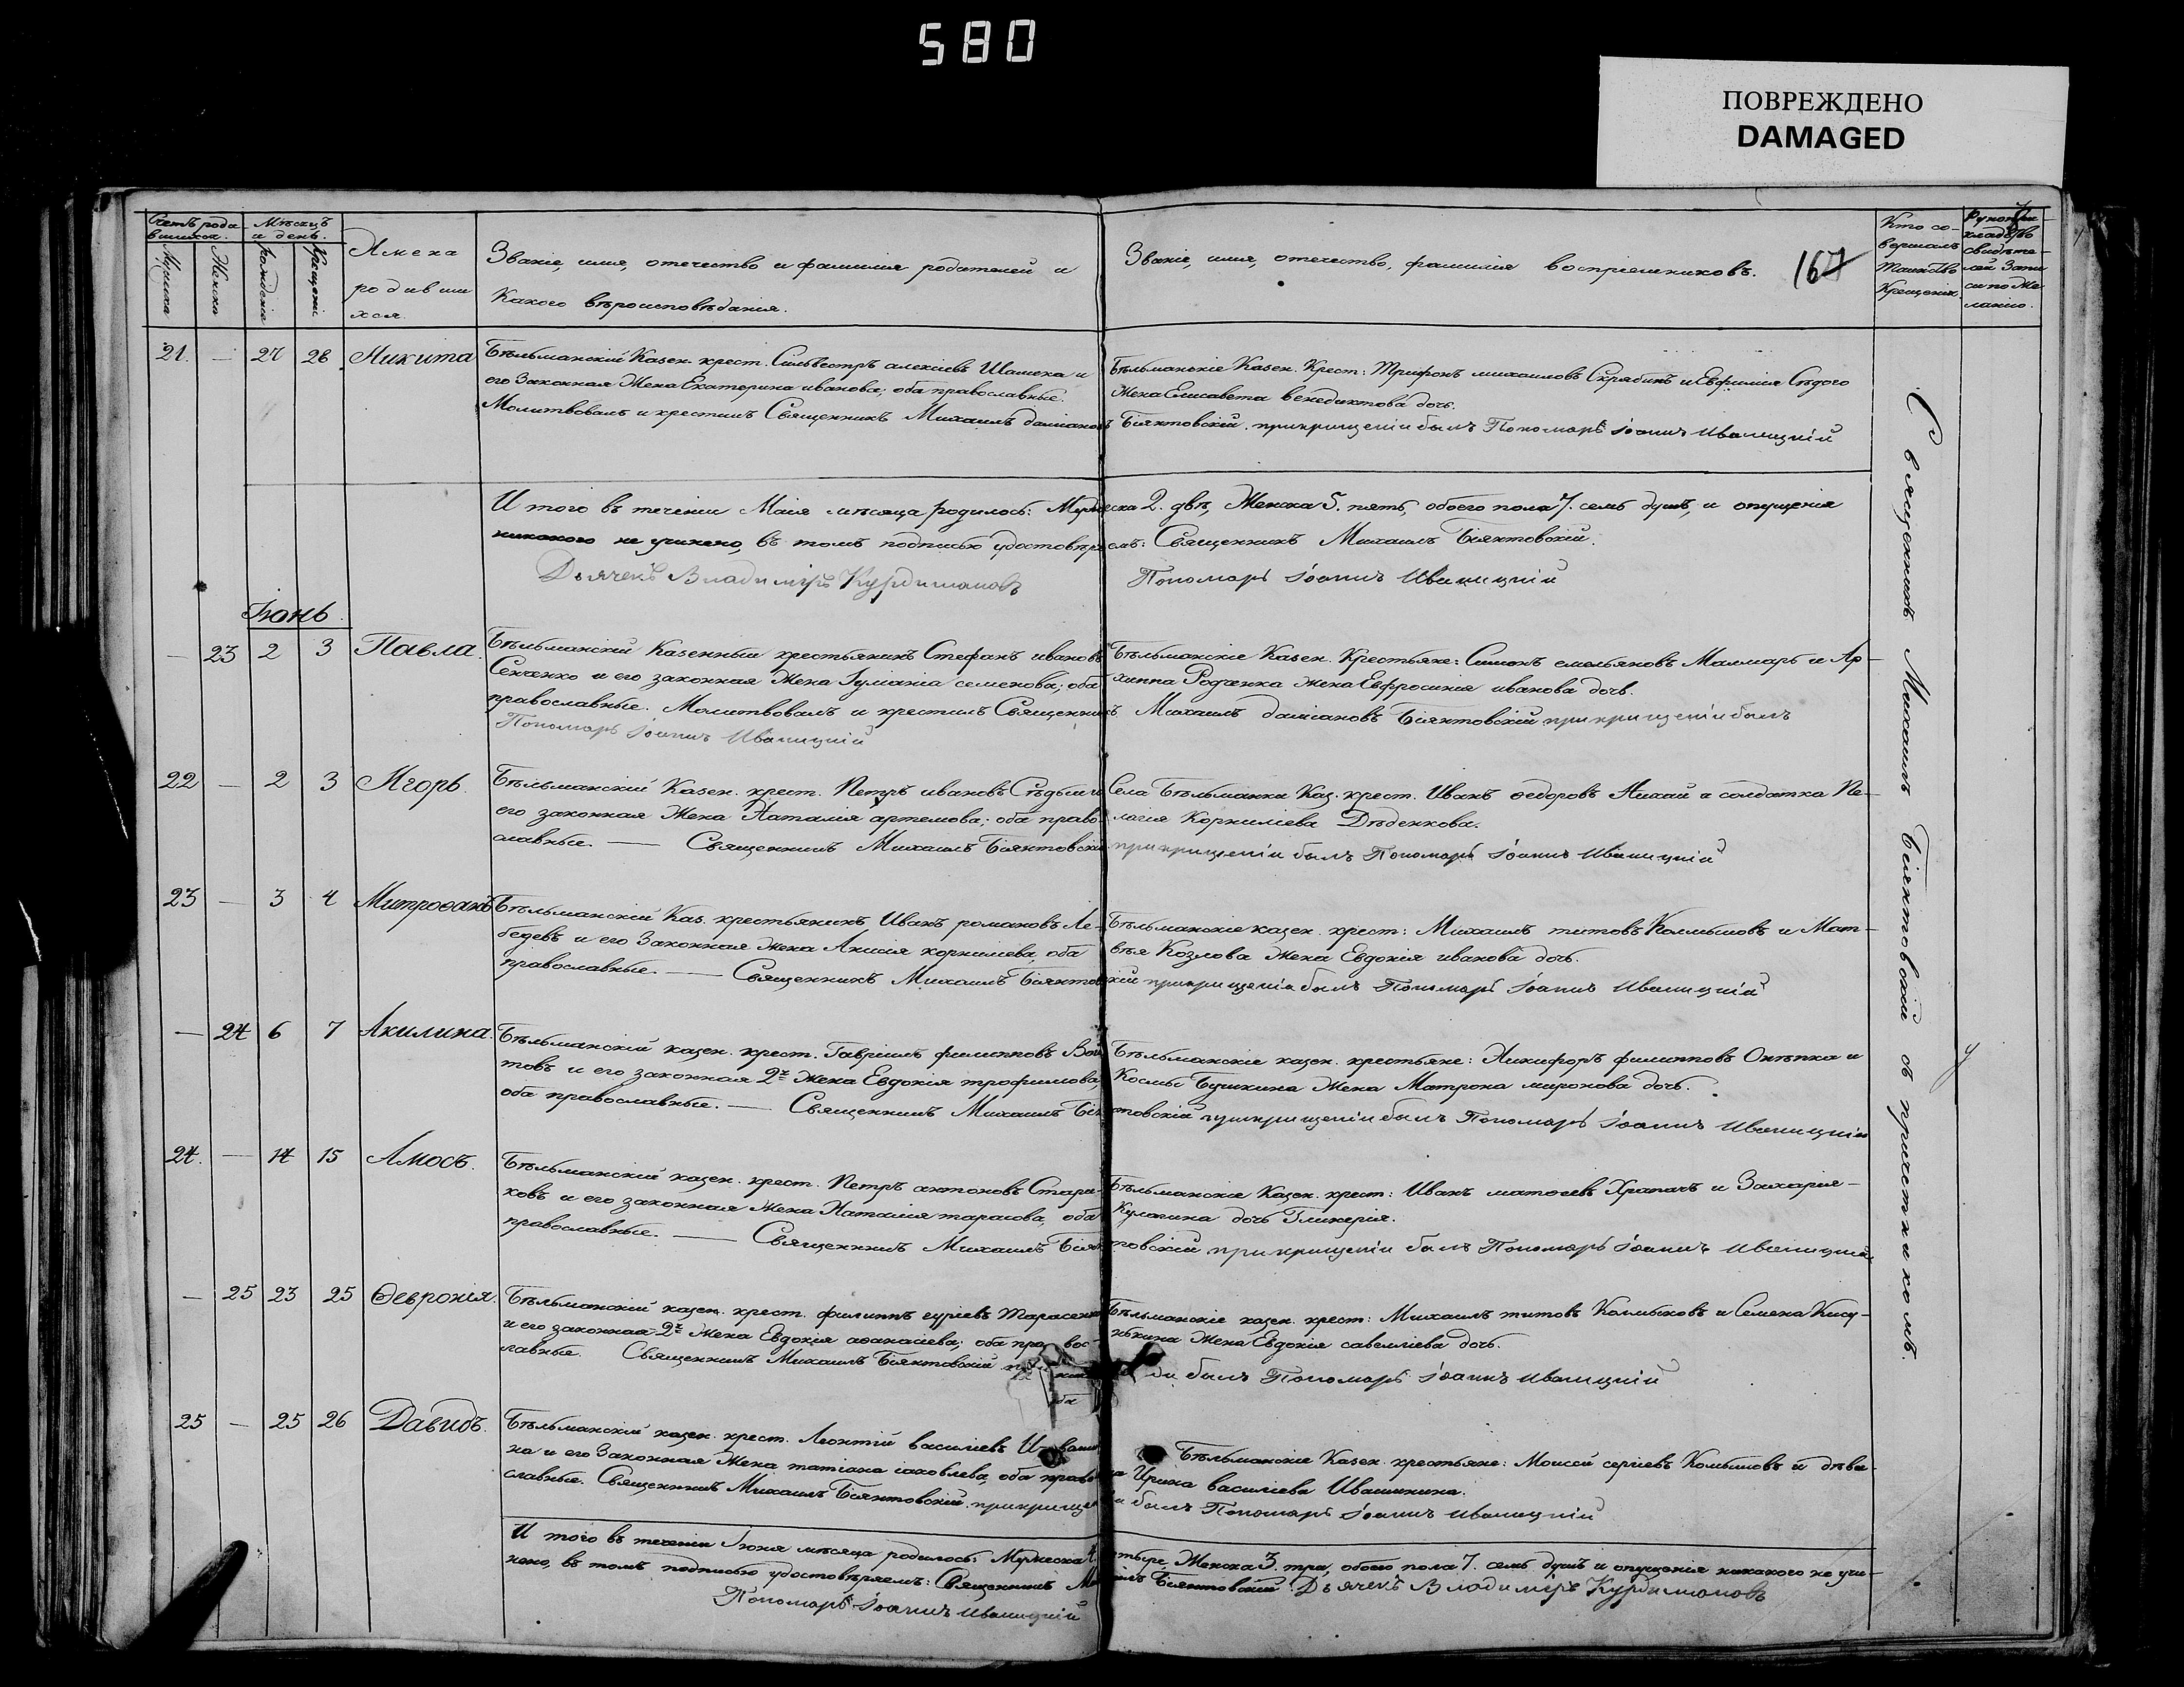 580
ПОВРЕЖДЕНО
DAMAGED
Счетъ роди-
вшихся.
Мѣсяцъ
и день.
Мужска
Женска
рожденiе
Крещенiе
Имена
родивши
хся.
Званiе, имя, отечество и фамилия родителей и
Какого вѣроисповѣданiя.
Званiе, имя, отечество, фамилия восприемниковъ.
167
Кто со-
вершалъ
таинство
Крещенiя
Рукопри-
кладство
свидѣте-
лей запи
си по же
ланiю.
21. — 27 28 Никита
Бѣльманскiй Казен. крест. Сильвестръ алексiевъ Шамека и
его Законная Жена Екатерина иванова; оба православные.
Молитвовалъ и крестилъ Священникъ Михаилъ дамiановъ
Бѣльманскiе Казен. Крест: Трифонъ михаиловъ Скрябинъ и Евфимiя Сѣдого
Жена Елисавета венедиктова дочь.
Бiянтовскiй. прикрищенiи былъ Пономарь Iоаннъ Иваницкiй
И того въ теченiи Маiя мѣсяца родилось: Мужеска 2. двѣ, Женска 5. пять, обоего пола 7. семь душъ, и опущенiя
никакого не учинено, въ томъ подписью удостовѣряемъ: Священникъ Михаилъ Бiянтовскiй.
Дьячекъ Владимiръ Курдимановъ
Пономарь Iоаннъ Иваницкiй
Iюнь.
— 23 2 3 Павла.
Бѣльманскiй Казенный крестьянинъ Стефанъ ивановъ
Сенченко и его законная Жена Гуманiа семенова; оба
православные. Молитвовалъ и крестилъ Священникъ
Пономарь Iоаннъ Иваницкiй
Бѣльманскiе Казен. Крестьяне: Симонъ емельяновъ Малмарь и Ар-
хиппа Родченка жена Евфросинiя иванова дочь.
Михаилъ дамiановъ Бiянтовскiй прикрищенiи былъ
22 — 2 3 Игорь.
Бѣльманскiй Казен. крест. Петръ ивановъ Сѣдый и
его законная Жена Наталiя артемова; оба право-
славные. — Священникъ Михаилъ Бiянтовскiй
Села Бѣльманки Каз. крест. Иванъ ѳедоровъ Нихай и солдатка Пе-
лагия Корнилева Дѣденкова.
прикрищенiи былъ Пономарь Iоаннъ Иваницкiй
23 — 3 4 Митрофанъ
Бѣльманскiй Каз. крестьянинъ Иванъ романовъ Ле-
бедевъ и его Законная Жена Анисiя корнилева, оба
православные. — Священникъ Михаилъ Бiянтов
Бѣльманскiе казен. крест: Михаилъ титовъ Колмыковъ и Мат-
вѣя Козлова Жена Евдокiя иванова дочь.
скiй прикрищенiи былъ Пономарь Iоаннъ Иваницкiй
— 24 6 7 Акилина.
Бѣльманскiй казен. крест. Гаврiилъ филипповъ Вои
товъ и его законная 2я Жена Евдокiя трофимова,
оба православные. — Священникъ Михаилъ Бiян
Бѣльманскiе казен. крестьяне: Никифоръ филипповъ Онѣпка и
Космы Бушкина Жена Матрона миронова дочь.
товскiй прикрищенiи былъ Пономарь Iоаннъ Иваницкiй
24. — 14 15 Амосъ.
Бѣльманскiй казен. крест. Петръ антоновъ Стари-
ковъ и его законная Жена Наталiя тарасова, оба
православные. — Священникъ Михаилъ Бiян
Бѣльманскiе Казен. крест: Иванъ матѳеевъ Храпачъ и Захария
Кулагина дочь Гликерiя.
товскiй прикрищенiи былъ Пономарь Iоаннъ Иваницкiй
— 25 23 25 Ѳеврония.
Бѣльманскiй казен. крест. филиппъ гурiевъ Тарасенко
и его законная 2я Жена Евдокiя аѳанасiева; оба пра вос
лавные. Священникъ Михаилъ Бiянтовскiй
Бѣльманскiе казен. крест: Михаилъ титовъ Колмыковъ и Семена Кису-
нькина Жена Евдокiя савелiева дочь.
былъ Пономарь Iоаннъ Иваницкiй
25 — 25 26 Давидъ.
Бѣльманскiй казен. крест. Леонтiй василiевъ Ивашк
на и его Законная Жена татiана iаковлева, оба право
славные. Священникъ Михаилъ Бiянтовскiй. прикрищен
Бѣльманскiе Казен. крестьяне: Моисей сергiевъ Колмыковъ и дѣви-
ца Ирина василiева Ивашинина.
iи былъ Пономарь Iоаннъ Иваницкiй
И того въ теченiи Iюня мѣсяца родилось: Мужеска 4. четыре, Женска 3. три, обоего пола 7. семь душъ и опущенiя никакого не учи-
нено, въ томъ подписью удостовѣряемъ: Священникъ Михаилъ Бiянтовскiй. Дьячекъ Владимiръ Курдимановъ
Пономарь Iоаннъ Иваницкiй
Священникъ Михаилъ Бiянтовскiй съ причетникомъ.